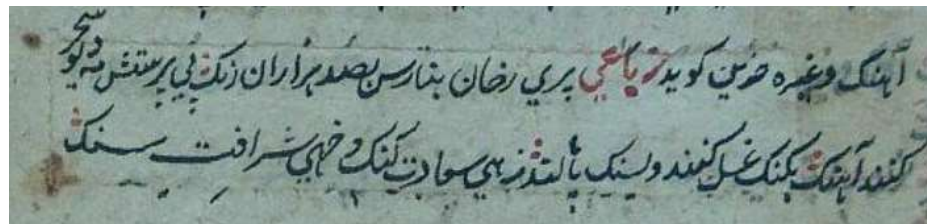 آهنگ وغیره حزین کوید رباعی پری رخان بنارس بصد هزاران رنک پی پرستش مه دیو
کنند آهنک بکنک غسل کنند و بسنک پا مالند زهی سعادت کنک و خهی شرافت سنک